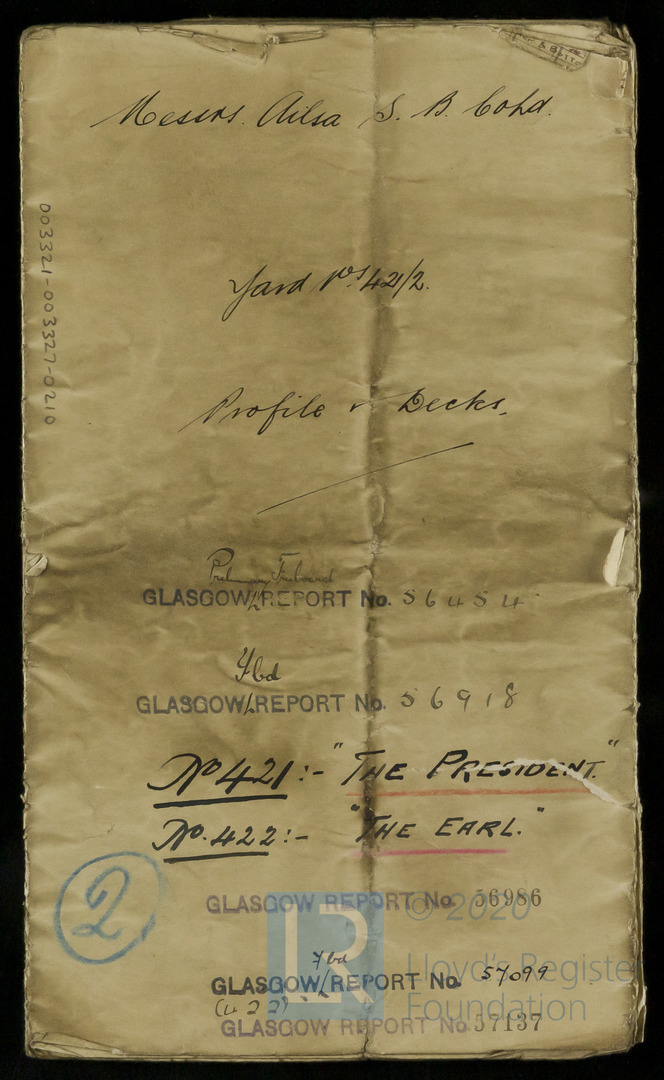 & BLTT
Messrs. Ailsa S. B. Co Ld.
Yard Nos 421/2.
003321-003327-0210
Profile & Decks.
Preliminary Freeboard
GLASGOW REPORT No. 56454
Fbd
GLASGOW REPORT No. 56918
No 421:- "THE PRESIDENT."
No. 422:- "THE EARL."
2
GLASGOW REPORT No. 56986
LR © 2020
Lloyd's Register
Foundation
Fbd
GLASGOW REPORT No. 57099
(422)
GLASGOW REPORT No 57137